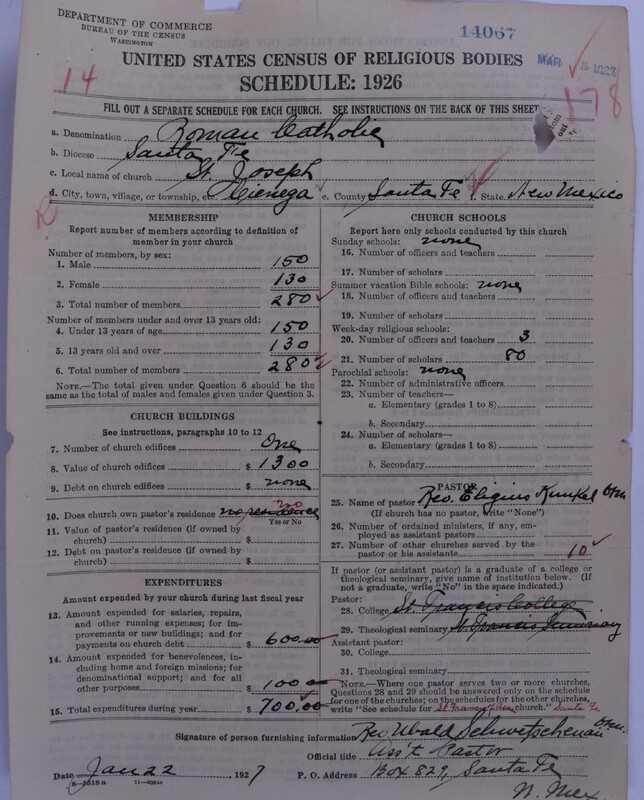 DEPARTMENT OF COMMERCE
BUREAU OF THE CENSUS
WASHINGTON
14067
MAR 5 1927
UNITED STATES CENSUS OF RELIGIOUS BODIES
SCHEDULE: 1926
14
178
FILL OUT A SEPARATE SCHEDULE FOR EACH CHURCH. SEE INSTRUCTIONS ON THE BACK OF THIS SHEET
a. Denomination Roman Catholic
b. Diocese Santa Fe
c. Local name of church St. Joseph
d. City, town, village, or township, etc. Cienega e. County Santa Fe f. State New Mexico
R
MEMBERSHIP
Report number of members according to definition of member in your church
Number of members, by sex:
1. Male 150
2. Female 130
3. Total number of members 280
Number of members under and over 13 years old:
4. Under 13 years of age 150
5. 13 years old and over 130
6. Total number of members 280
NOTE.—The total given under Question 6 should be the same as the total of males and females given under Question 3.
CHURCH BUILDINGS
See instructions, paragraphs 10 to 12
7. Number of church edifices One
8. Value of church edifices $ 1300
9. Debt on church edifices $ none
10. Does church own pastor's residence no residence no
Yes or No
11. Value of pastor's residence (if owned by church) $
12. Debt on pastor's residence (if owned by church) $
EXPENDITURES
Amount expended by your church during last fiscal year
13. Amount expended for salaries, repairs, and other running expenses; for improvements or new buildings; and for payments on church debt $ 600.00
14. Amount expended for benevolences, including home and foreign missions; for denominational support; and for all other purposes $ 100.00
15. Total expenditures during year $ 700.00
CHURCH SCHOOLS
Report here only schools conducted by this church
Sunday schools: none
16. Number of officers and teachers
17. Number of scholars
Summer vacation Bible schools: none
18. Number of officers and teachers
19. Number of scholars
Week-day religious schools:
20. Number of officers and teachers 3
21. Number of scholars 80
Parochial schools: none
22. Number of administrative officers
23. Number of teachers—
a. Elementary (grades 1 to 8)
b. Secondary
24. Number of scholars—
a. Elementary (grades 1 to 8)
b. Secondary
PASTOR
25. Name of pastor Rev. Eligius Kunkel Ofm
(If church has no pastor, write "None")
26. Number of ordained ministers, if any, employed as assistant pastors
27. Number of other churches served by the pastor or his assistants 10
If pastor (or assistant pastor) is a graduate of a college or theological seminary, give name of institution below. (If not a graduate, write "No" in the space indicated.)
Pastor:
28. College St. Francis College
29. Theological seminary St. Francis Seminary
Assistant pastor:
30. College
31. Theological seminary
NOTE.—Where one pastor serves two or more churches, Questions 28 and 29 should be answered only on the schedule for one of the churches; on the schedules for the other churches, write "See schedule for church." Santa Fe
Signature of person furnishing information Rev Ubald Ofm.
Official title Ass't Pastor
Date Jan 22 1927 P. O. Address Box 829, Santa Fe
N. Mex.